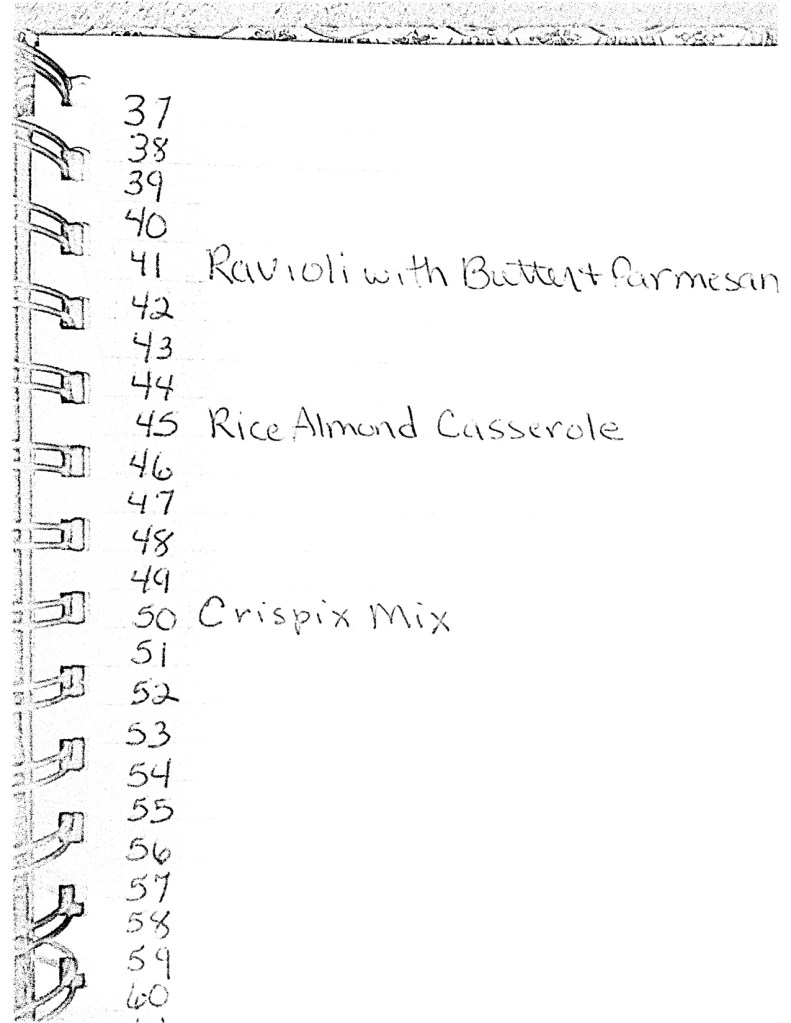 37
38
39
40
41 Ravioli with Butter + Parmesan
42
43
44
45 Rice Almond Casserole
46
47
48
49
50 Crispix Mix
51
52
53
54
55
56
57
58
59
60